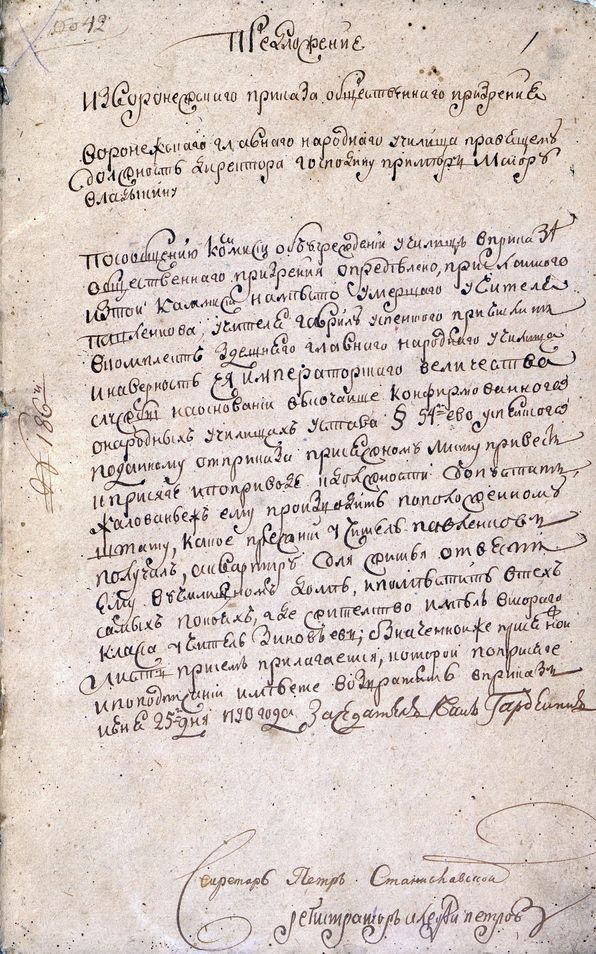 № 42
Предложение
Изворонежскаго приказа общественнаго призрения
Воронежскаго главнаго народнаго училища правящему
должность директора господину примиор маиору
Посообщению комисии обучреждении училищъ вприказѣ
общественнаго призрения определено, присланного
изтой камисии наместо умершаго учителя
Павленкова, учителя
вкомплектъ здешняго главнаго народнаго училища
инаверность ея императорскаго величества
службы наосновании высочайше конфирмованнаго
онародныхъ училищахъ устава § 54 ево,
поданному отприказа присяжному листу привести
кприсяге ипоприводе кдолжности допустить,
жалованьежъ ему производить поположенному
штату, какое прежний учитель Павленковъ
получалъ, аквартиръ для житья отвести
ему вучилищномъ доме, ипоместить втехъ
самыхъ покояхъ, где жительство имелъ втораго
класа учитель Зиновьевъ; означеннойже присяжной
листъ присемъ прилагается, которой поприводе
иподписании имеете возвратить вприказъ
июня 25 дня 1790 года Заседатель
Секретарь Петръ Станиславской
регистраторъ Петровъ